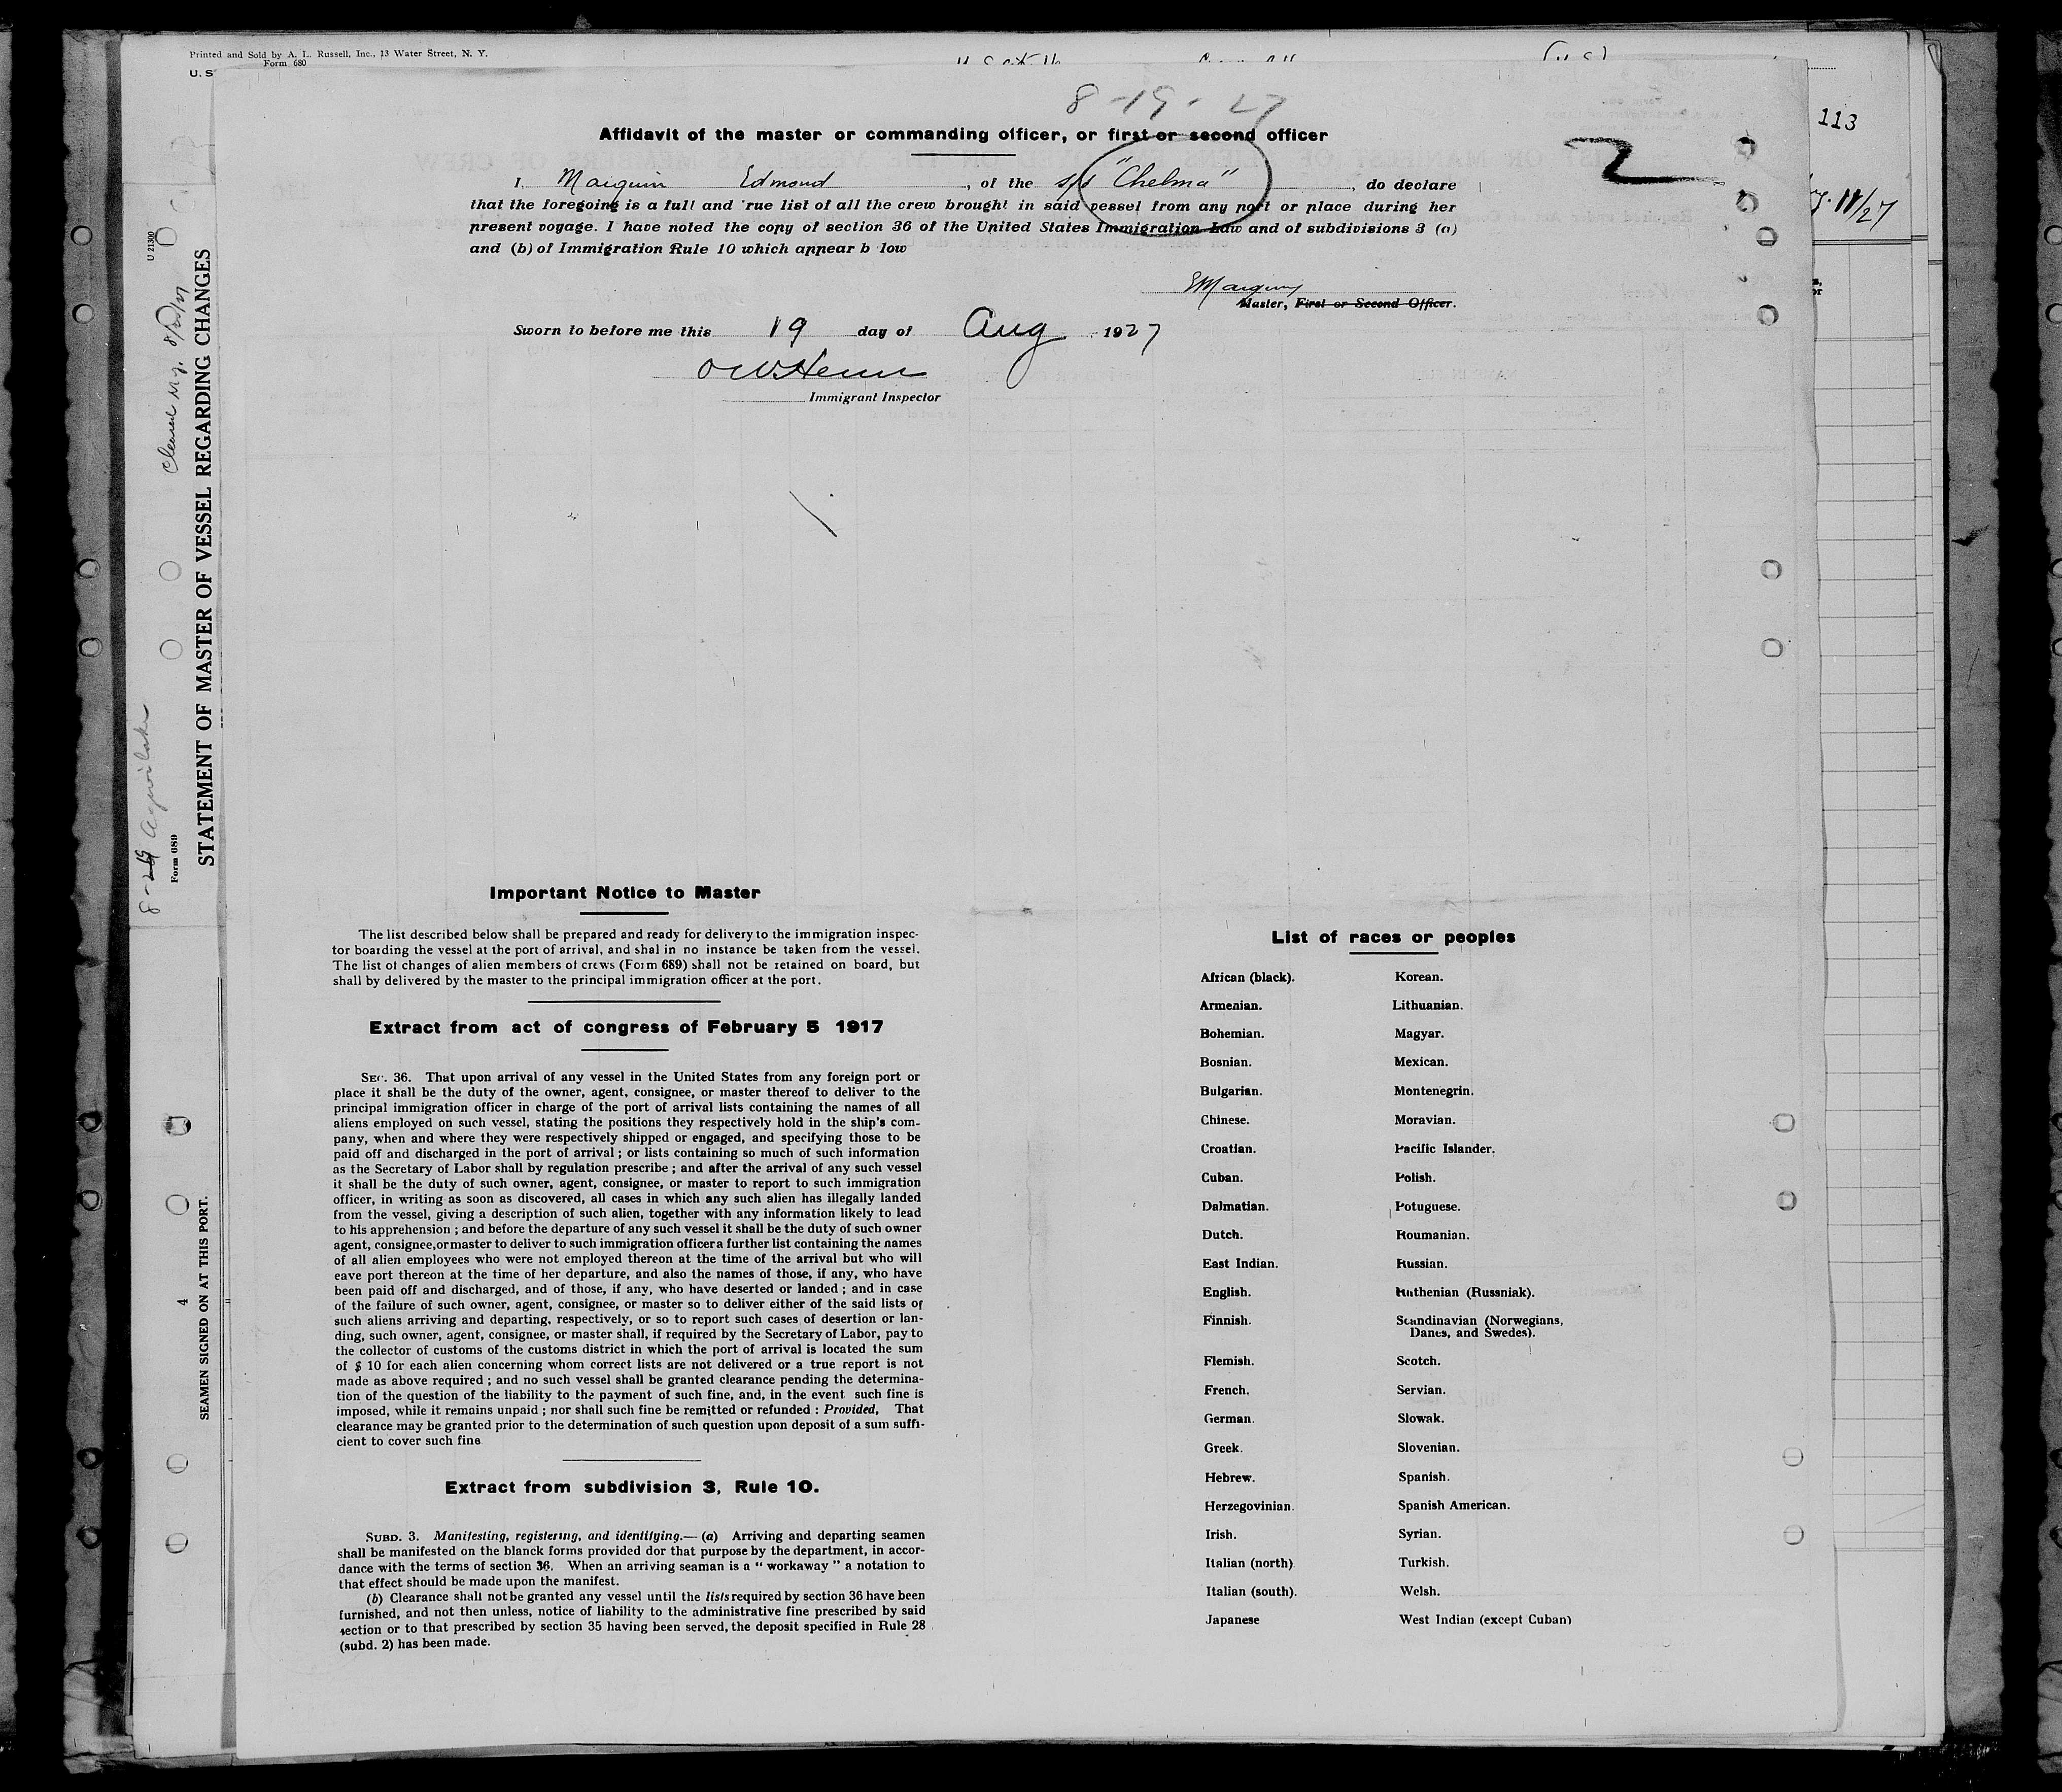 Printed and Sold by A. L. Russell, Inc., 13 Water Street, N. Y.
Form 680
U. S
8-19-27
113
2
Affidavit of the master or commanding officer, or first or second officer
I, Marquin Edmond, of the s/s "Chelma", do declare
that the foregoing is a full and rue list of all the crew brought in said vessel from any port or place during her
present voyage. I have noted the copy of section 36 of the United States Immigration Law and of subdivisions 3 (a)
and (b) of Immigration Rule 10 which appear b low
Master, First or Second Officer.
Sworn to before me this 19 day of Aug 1927
Immigrant Inspector
U 21300
Form 689
STATEMENT OF MASTER OF VESSEL REGARDING CHANGES
4
SEAMEN SIGNED ON AT THIS PORT.
Important Notice to Master
The list described below shall be prepared and ready for delivery to the immigration inspec-
tor boarding the vessel at the port of arrival, and shal in no instance be taken from the vessel.
The list of changes of alien members of crews (Form 689) shall not be retained on board, but
shall by delivered by the master to the principal immigration officer at the port.
Extract from act of congress of February 5 1917
SEC. 36. That upon arrival of any vessel in the United States from any foreign port or
place it shall be the duty of the owner, agent, consignee, or master thereof to deliver to the
principal immigration officer in charge of the port of arrival lists containing the names of all
aliens employed on such vessel, stating the positions they respectively hold in the ship's com-
pany, when and where they were respectively shipped or engaged, and specifying those to be
paid off and discharged in the port of arrival ; or lists containing so much of such information
as the Secretary of Labor shall by regulation prescribe ; and after the arrival of any such vessel
it shall be the duty of such owner, agent, consignee, or master to report to such immigration
officer, in writing as soon as discovered, all cases in which any such alien has illegally landed
from the vessel, giving a description of such alien, together with any information likely to lead
to his apprehension ; and before the departure of any such vessel it shall be the duty of such owner
agent, consignee,ormaster to deliver to such immigration officer a further list containing the names
of all alien employees who were not employed thereon at the time of the arrival but who will
eave port thereon at the time of her departure, and also the names of those, if any, who have
been paid off and discharged, and of those, if any, who have deserted or landed ; and in case
of the failure of such owner, agent, consignee, or master so to deliver either of the said lists of
such aliens arriving and departing, respectively, or so to report such cases of desertion or lan-
ding, such owner, agent, consignee, or master shall, if required by the Secretary of Labor, pay to
the collector of customs of the customs district in which the port of arrival is located the sum
of $ 10 for each alien concerning whom correct lists are not delivered or a true report is not
made as above required ; and no such vessel shall be granted clearance pending the determina-
tion of the question of the liability to the payment of such fine, and, in the event such fine is
imposed, while it remains unpaid ; nor shall such fine be remitted or refunded : Provided, That
clearance may be granted prior to the determination of such question upon deposit of a sum suffi-
cient to cover such fine
Extract from subdivision 3, Rule 10.
SUBD. 3. Manifesting, registering, and identifying.— (a) Arriving and departing seamen
shall be manifested on the blanck forms provided dor that purpose by the department, in accor-
dance with the terms of section 36. When an arriving seaman is a " workaway " a notation to
that effect should be made upon the manifest.
(b) Clearance shall not be granted any vessel until the lists required by section 36 have been
furnished, and not then unless, notice of liability to the administrative fine prescribed by said
section or to that prescribed by section 35 having been served, the deposit specified in Rule 28
(subd. 2) has been made.
List of races or peoples
African (black). Korean.
Armenian. Lithuanian.
Bohemian. Magyar.
Bosnian. Mexican.
Bulgarian. Montenegrin.
Chinese. Moravian.
Croatian. Pacific Islander.
Cuban. Polish.
Dalmatian. Potuguese.
Dutch. Roumanian.
East Indian. Russian.
English. Ruthenian (Russniak).
Finnish. Scandinavian (Norwegians,
Danes, and Swedes).
Flemish. Scotch.
French. Servian.
German. Slowak.
Greek. Slovenian.
Hebrew. Spanish.
Herzegovinian. Spanish American.
Irish. Syrian.
Italian (north) Turkish.
Italian (south). Welsh.
Japanese West Indian (except Cuban)